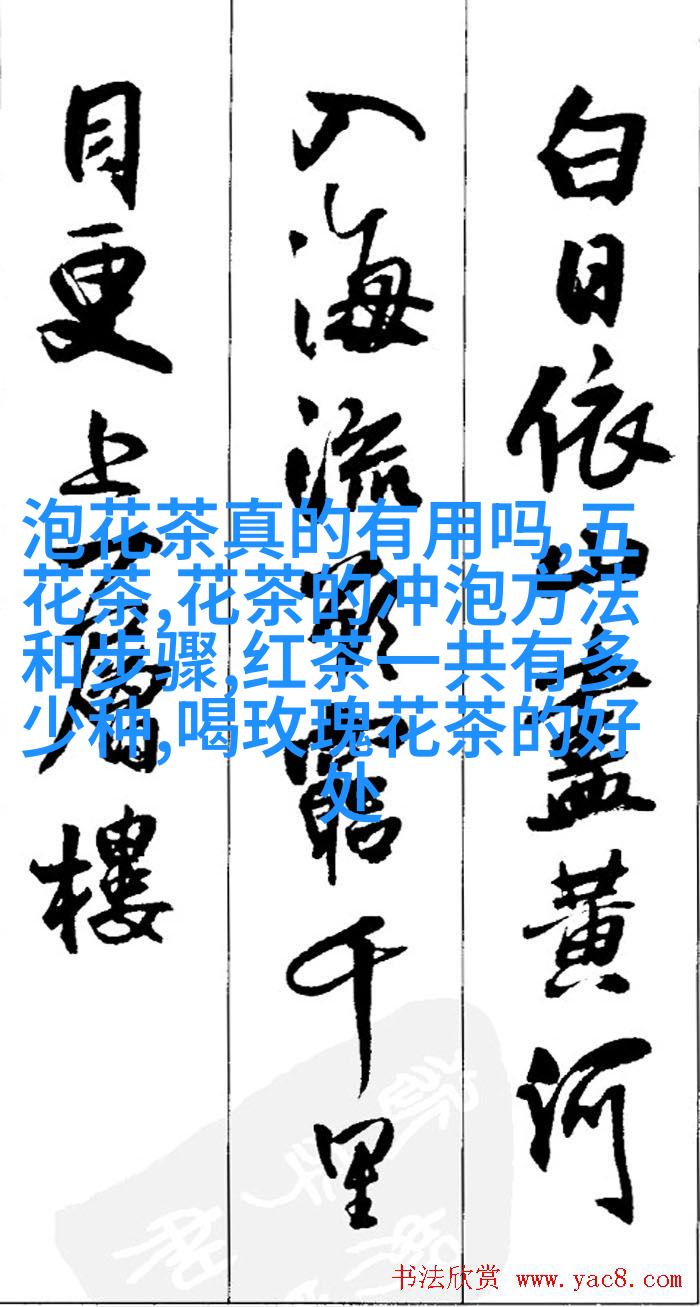 白日依山盡黃河
入海流欲窮千里
目更上一層樓
泡花茶真的有用吗,五
花茶,花茶的冲泡方法
和步骤,红茶一共有多
少种,喝玫瑰花茶的好
处
书法欣赏 www.yac8.com